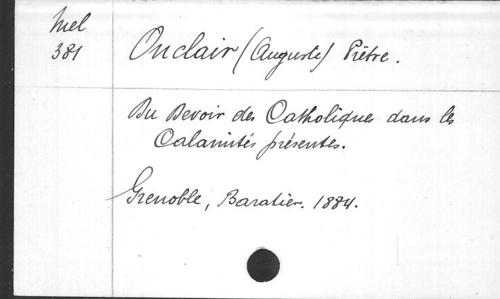 Mel
381
Onclair (Auguste) Prêtre.
Du Devoir des Catholiques dans les
Calamités présentes.
Grenoble, Baratier. 1884.